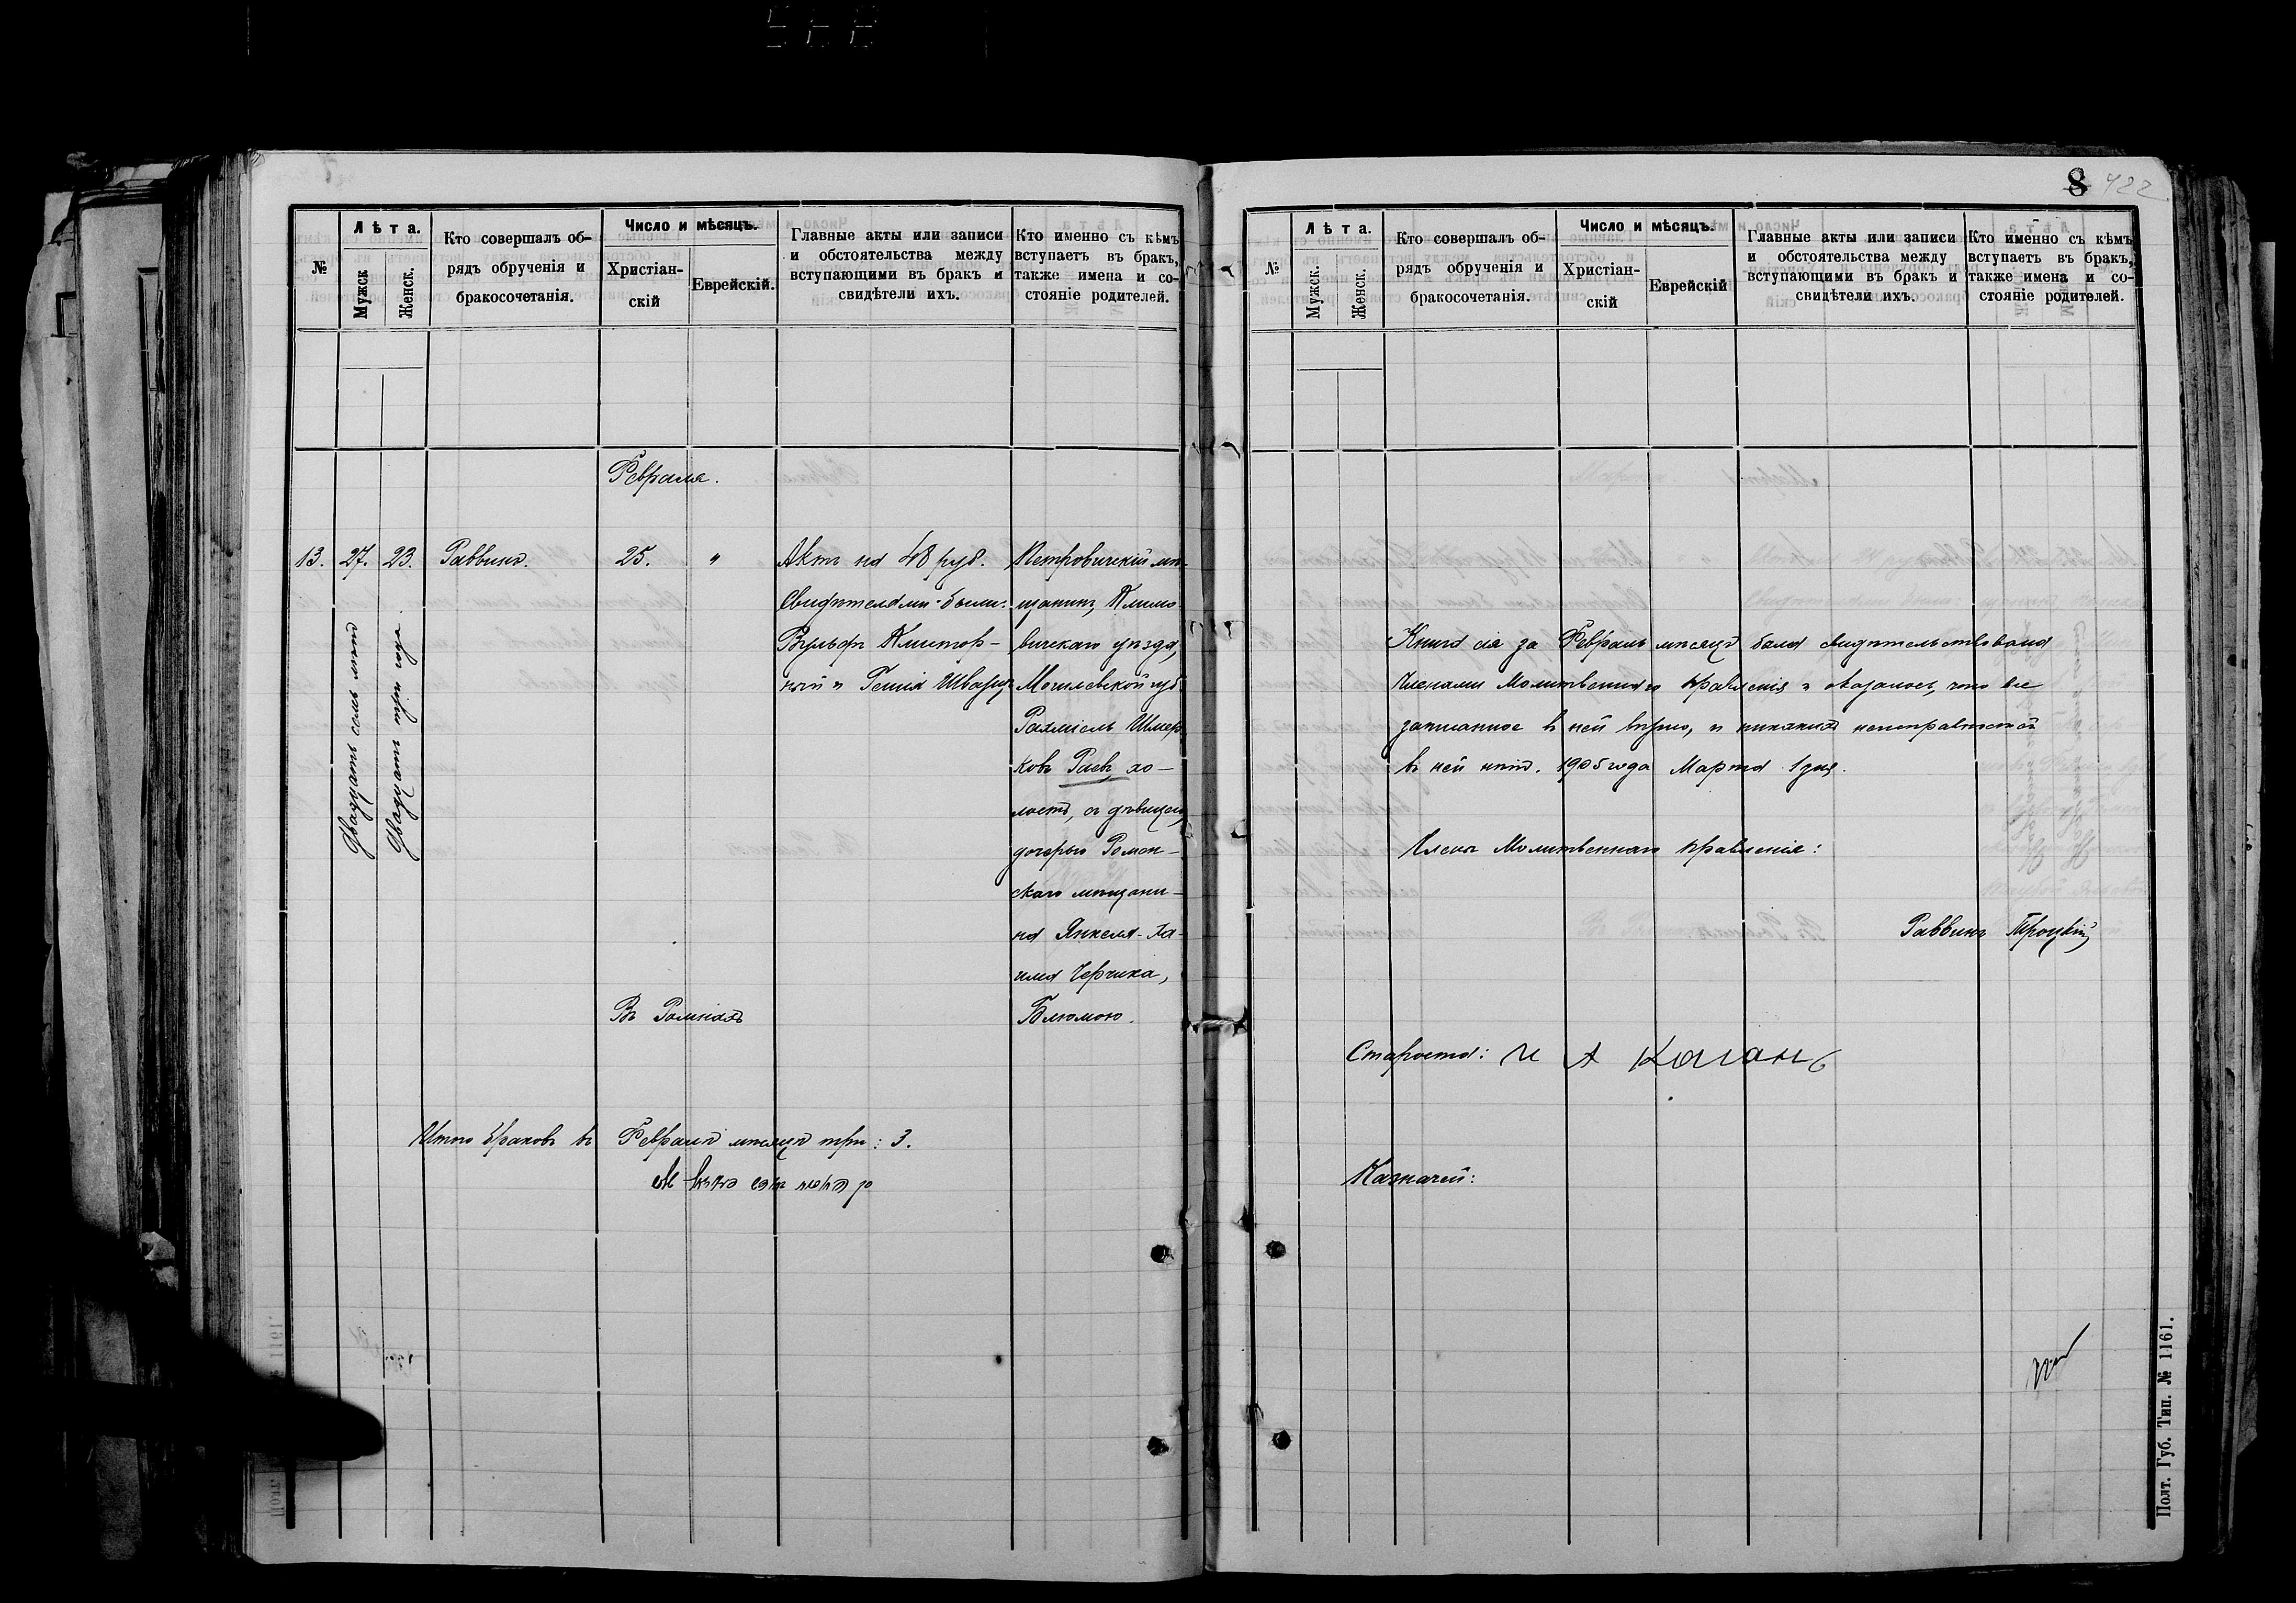 8 422
№
Лѣта.
Мужск
Женск.
Кто совершалъ об-
рядъ обрученія и
бракосочетанія.
Число и мѣсяцъ.
Христіан-
скій
Еврейскій.
Главные акты или записи
и обстоятельства между
вступающими въ бракъ и
свидѣтели ихъ.
Кто именно съ кѣмъ
вступаетъ въ бракъ,
также имена и со-
стояніе родителей.
Февраля.
13. 27. 23. Раввинъ. 25. "
Двадцать семь лѣтъ
Двадцать три года
Актъ на 48 руб.
Свидѣтелями были:
Вульфъ
ный и Гешля Шварцъ
Петровичскій мѣ-
щанинъ, Климо-
вичскаго уѣзда,
Могилевской губ.
Шмер-
ковъ Раевъ хо-
лостъ, съ дѣвицею,
дочерью Ромен-
скаго мѣщани-
на Янкеля-Ха-
има Черчика,
Блюмою.
Въ Ромнахъ
Итого браковъ въ Февралѣ мѣсяцѣ три: 3.
№
Лѣта.
Мужск.
Женск.
Кто совершалъ об-
рядъ обрученія и
бракосочетанія.
Число и мѣсяцъ.
Христіан-
скій
Еврейскій
Главные акты или записи
и обстоятельства между
вступающими въ бракъ и
свидѣтели ихъ.
Кто именно съ кѣмъ
вступаетъ въ бракъ,
также имена и со-
стояніе родителей.
Книга сія за Февраль мѣсяцъ была свидѣтельствована
Членами Молитвеннаго правленія и оказалось, что все
записанное въ ней вѣрно, и никакихъ неисправностей
въ ней нѣтъ. 1905 года Марта 1 дня.
Члены Молитвеннаго правленія:
Раввинъ Троцкій
Староста: И А Каганъ
Казначей:
Полт. Губ. Тип. № 1161.